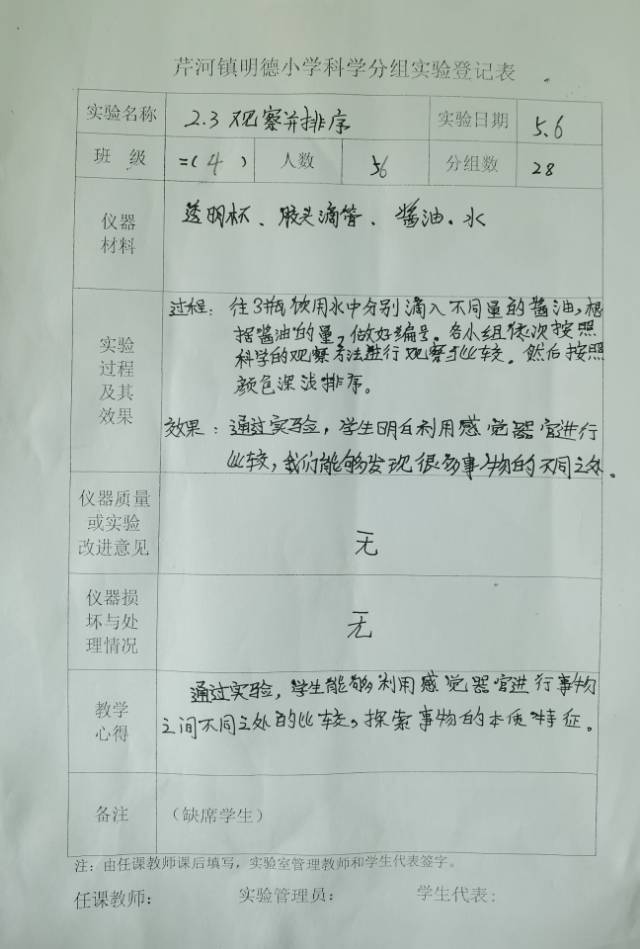 芹河镇明德小学科学分组实验登记表
实验名称 2.3 观察并排序 实验日期 5.6
班 级 二(4) 人数 56 分组数 28
仪器
材料
透明杯、胶头滴管、酱油、水
实验
过程
及其
效果
过程：往3瓶饮用水中分别滴入不同量的酱油，根
据酱油的量，做好编号。各小组依次按照
科学的观察方法进行观察与比较。然后按照
颜色深浅排序。
效果：通过实验，学生明白利用感觉器官进行
比较，我们能够发现很多事物的不同之处。
仪器质量
或实验
改进意见
无
仪器损
坏与处
理情况
无
教学
心得
通过实验，学生能够利用感觉器官进行事物
之间不同之处的比较，探索事物的本质特征。
备注 （缺席学生）
注：由任课教师课后填写，实验室管理教师和学生代表签字。
任课教师： 实验管理员： 学生代表：